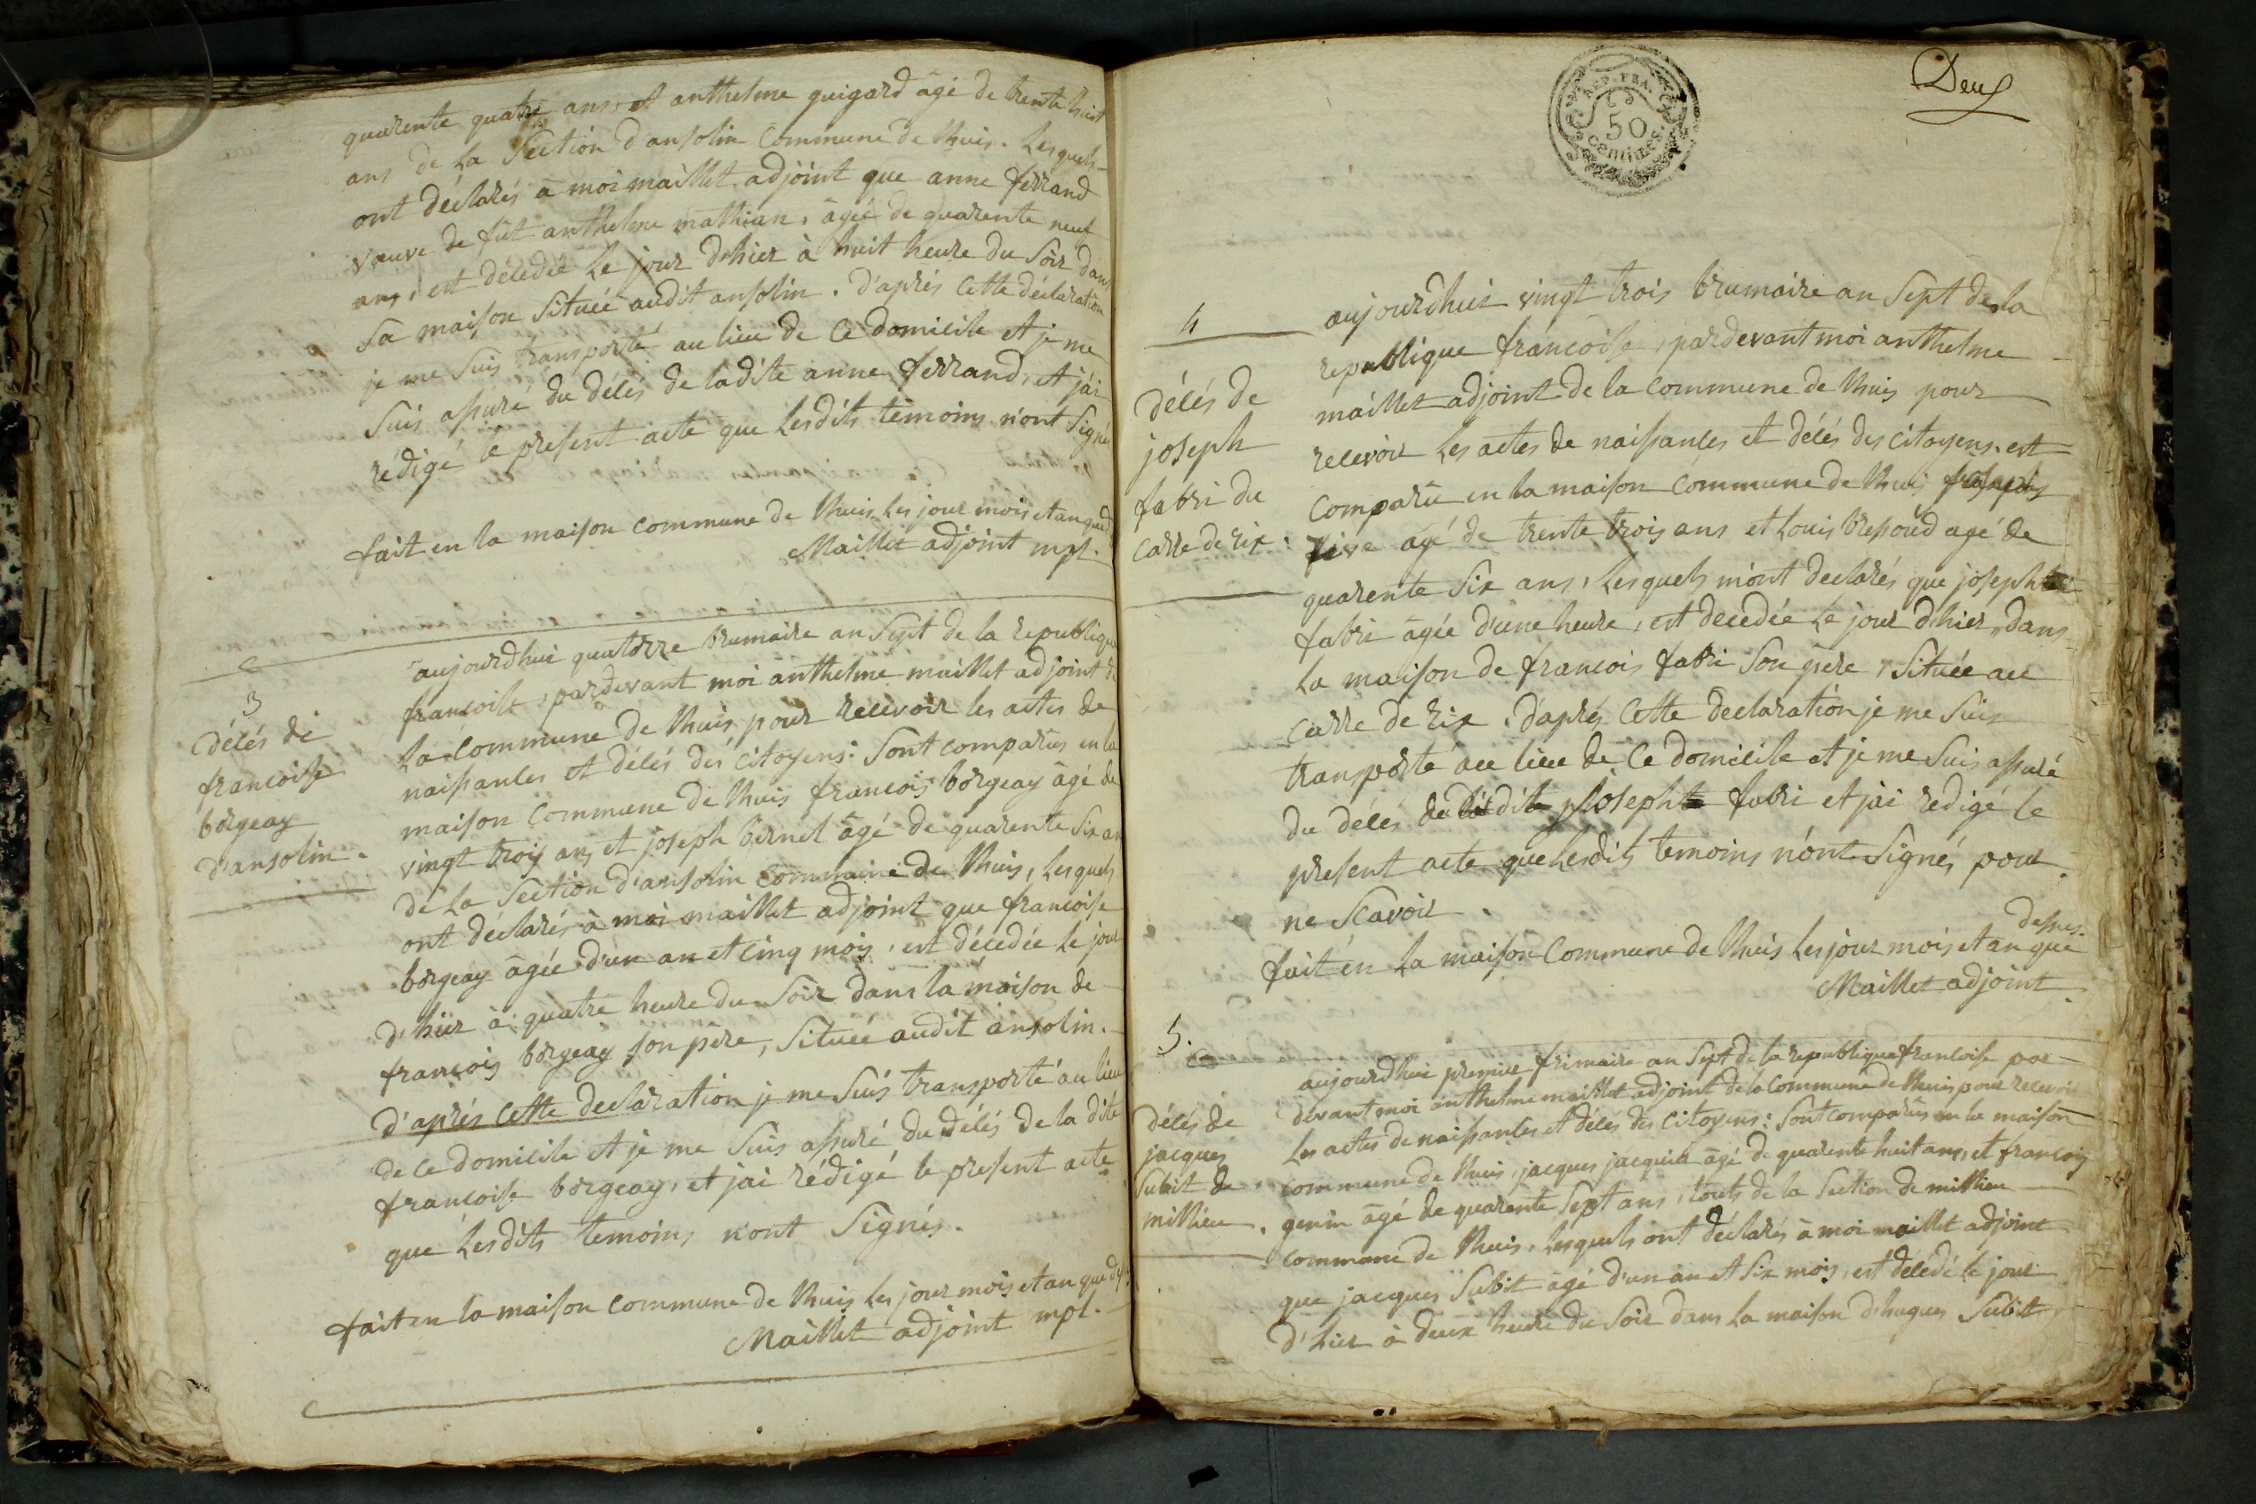 quarente quatre ans, et anthelme guigard âgé de trente huit
ans de la Section d'ansolin Commune de thuis. Lesquels
ont déclarés à moi maillet adjoint que anne ferrand
veuve de fût anthelme mathian, âgée de quarente neuf
ans, est décedée le jour d'hier à huit heure du Soir dans
Sa maison Située audit ansolin. d'aprés Cette déclaration
je me suis transporté au lieu de ce domicile et je me
Suis assuré du décés de ladite anne ferrand, et jai
rédigé le present acte que lesdits temoins n'ont Signés
fait en la maison commune de thuis les jour mois et an que d
Maillet adjoint mpl.
3
décés de
francoise
borgeay
d'ansolin.
aujourdhui quatorze brumaire an Sept de la republique
francoise, pardevant moi anthelme maillet adjoint
La Commune de thuis pour recevoir les actes de
naissances et décés dés citoyens: Sont comparûs en la
maison Commune de thuis francois borgeay âgé de
vingt trois ans et joseph bernel âgé de quarente six an
de La Section d'ansolin commune de thuis, Lesquels
ont déclarés à moi maillet adjoint que francoise
borgeay âgée d'un an et cinq mois, est décedée le jour
d'hier à quatre heure du Soir dans la maison de
francois borgeay son père, Située audit ansolin.
d'aprés cette declaration je me suis transporté au lieu
de ce domicile et je me Suis assuré du décés de la dite
francoise borgeay, et jai rédigé le present acte
que lesdits temoins n'ont Signés.
fait en la maison commune de thuis les jour mois et an que ds
Maillet adjoint mpl.
Deux
REP. FRA.
50
Centimes
4
décés de
joseph
fabri du
carre de rix.
aujourdhui vingt trois brumaire an Sept de la
republique francoise, pardevant moi anthelme
maillet adjoint de la commune de thuis pour
recevoir les actes de naissances et décés des citoyens. est
Comparû en la maison Commune de thuis
âgé de trente trois ans et Louis agé de
quarente Six ans, lesquels m'ont declarés que joseph
fabri âgée d'une heure, est decedée le jour d'hier, dans
la maison de francois fabri Son pere, Située au
carre de rix. d'aprés Cette declaration je me Suis
transporté au lieu de Ce domicile et je me Suis assuré
du décés du dit joseph fabri et jai redigé le
present acte que lesdits temoins n'ont Signés pour
ne Scavoir.
fait en la maison Commune de thuis les jour mois et an que
dessus.
Maillet adjoint
5.
décés de
jacques
Subit de
millieu.
aujourdhui premier frimaire an Sept de la republique francoise par
devant moi anthelme maillet adjoint de la Commune de thuis pour recevoir
Les actes de naissances et décés des Citoyens: Sont comparûs en la maison
commune de thuis, jacques jacquier âgé de quarente huit ans, et francois
genin âgé de quarente Sept ans, touts de la Section de millieu
commune de thuis, lesquels ont déclarés à moi maillet adjoint
que jacques Subit âgé d'un an et Six mois, est décedé le jour
d'hier à deux heure du Soir dans la maison d'hugues Subit